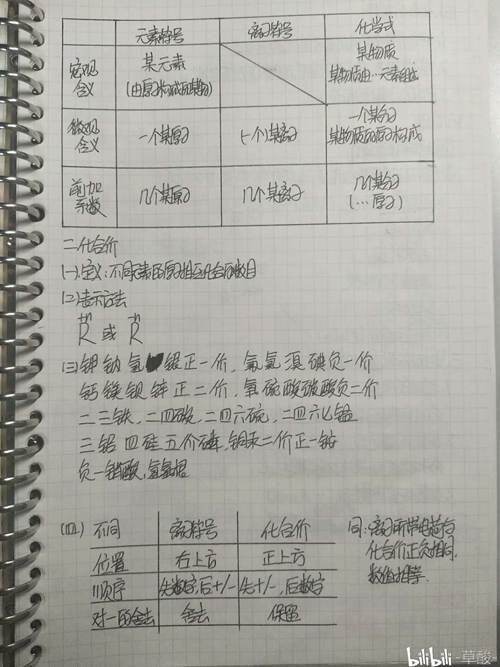 元素符号 离子符号 化学式
宏观含义 某元素(由原子构成的某物) 某物质 某物质由…元素组成
微观含义 一个某原子 (一个)某离子 一个某分子 某物质由原子构成
前加系数 几个某原子 几个某离子 几个某分子(…原子)
二.化合价
(一)定义:不同元素的原子相互化合的数目
(二)表示方法
R 或 R
(三)钾钠氢 银正一价,氟氯溴碘负一价
钙镁钡锌正二价,氧硫酸碳酸负二价
二三铁,二四碳,二四六硫,二四六七锰
三铝四硅五价磷,铜汞二价正一
负一硝酸,氢氧根
(四) 不同 离子符号 化合价
位置 右上方 正上方
顺序 先数字,后+/- 先+/-,后数字
对一的舍去 舍去 保留
同:离子所带电荷与
化合价正负相同,
数值相等.
bilibili 草酸